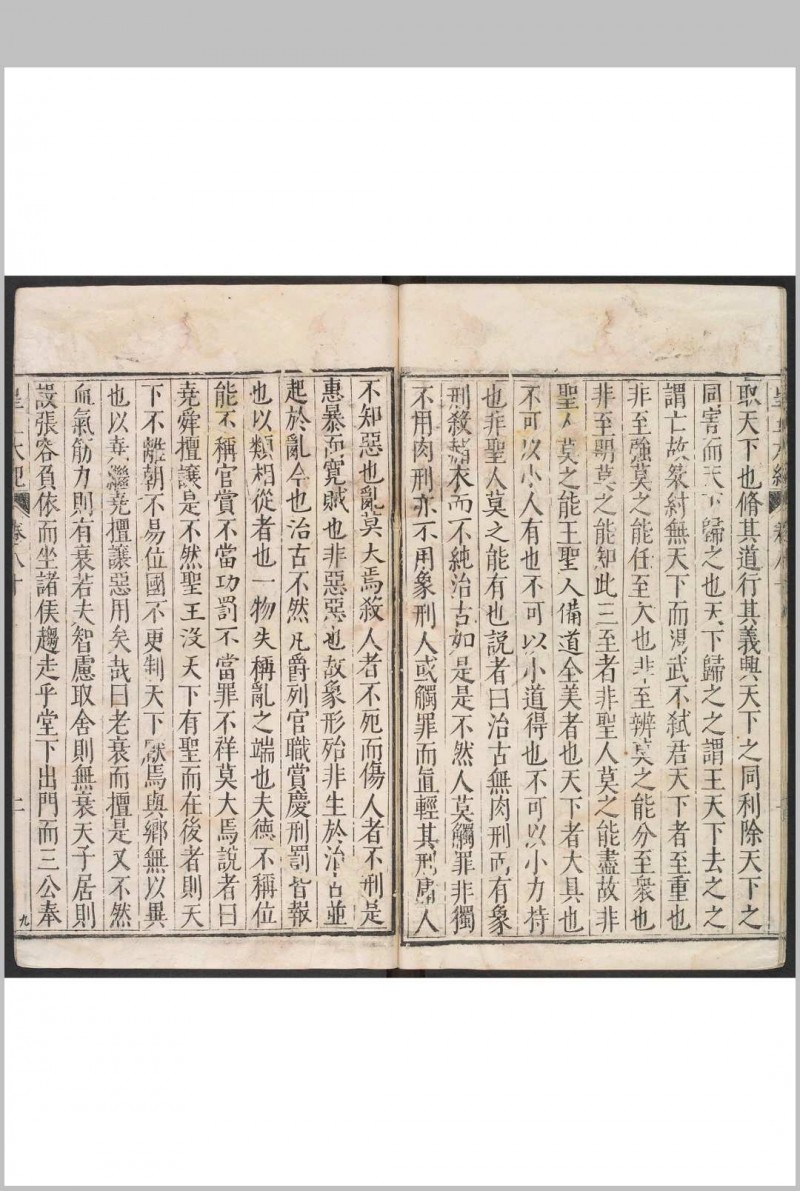 取天下也脩其道行其義興天下之同利除天下之
同害而天下歸之也天下歸之之謂王天下去之之
謂亡故桀紂無天下而湯武不弑君天下者至重也
非至強莫之能任至大也非至辨莫之能分至衆也
非至明莫之能知此三至者非聖人莫之能盡故非
聖人莫之能王聖人備道全美者也天下者大具也
不可以小人有也不可以小道得也不可以小力持
也非聖人莫之能有也説者曰治古無肉刑而有象
刑殺赭衣而不純治古如是是不然人莫觸罪非獨
不用肉刑亦不用象刑人或觸罪而直輕其刑庸人
不知惡也亂莫大焉殺人者不死而傷人者不刑是
惠暴而寛賊也非惡惡也故象形殆非生於治古並
起於亂今也治古不然凡爵列官職賞慶刑罰皆報
也以類相從者也一物失稱亂之端也夫德不稱位
能不稱官賞不當功罰不當罪不祥莫大焉説者曰
堯舜擅讓是不然聖王没天下有聖而在後者則天
下不離朝不易位國不更制天下厭焉與鄉無以異
也以堯繼堯擅讓惡用矣哉曰老衰而擅是又不然
血氣筋力則有衰若夫智慮取舍則無衰天子居則
設張容負依而坐諸侯趨走乎堂下出門而三公奉
皇王大紀 卷八十 二 九